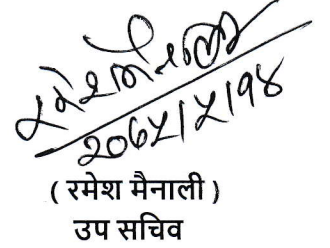 रमेश मैनाली
२०७५/५/१४
( रमेश मैनाली )
उप सचिव